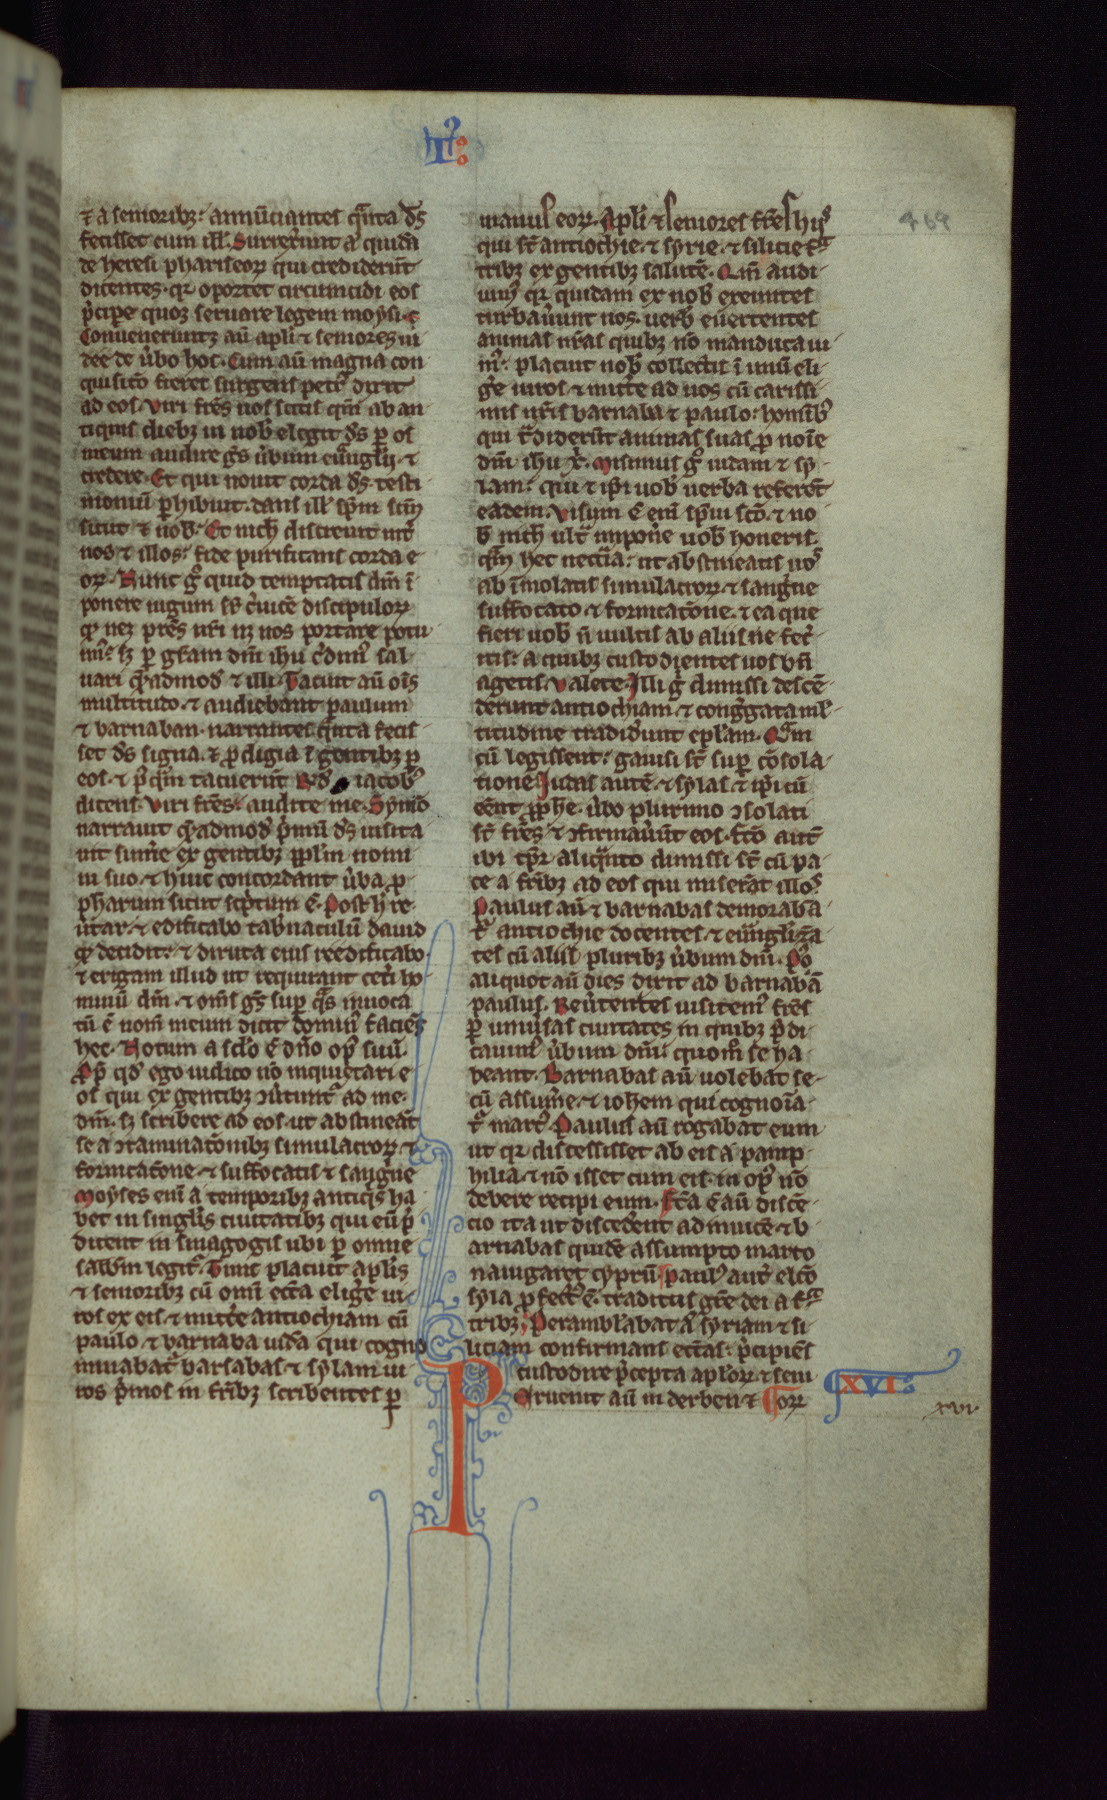 Lꝰ:
469
⁊ a senioribꝫ: annūciantes qͣnta ds̄
fecisset cum ill̓. Surrexer̄unt aū quidā
de heresi phariseoꝝ qui crediderūt
dicentes. qꝛ oportet circumcidi eos
p̄cipe quoqꝫ seruare legem moysi.
Conueneruntqꝫ aū apli ⁊ seniores ui
dere de ūbo hoc. Cum aū magna con
quisito fieret surgens petrꝰ dixit
ad eos. Viri frēs uos scitis qm̄ ab an
tiquis diebꝫ in nob̄ elegit ds̄ ꝑ os
meum audire gēs ūbum euͣnglij ⁊
credere. Et qui nouit corda ds̄. testi
moniū ꝑhibuit. dans ill̓ sp̄m scm̄
sicut ⁊ nob̄. Et nich̓ discreuit int̓
nos ⁊ illos: fide purificans corda e
oꝝ. Nunc gͦ quid temptatis dm̄ ī
ponere iugum sr̄ ceruicē discipuloꝝ
qd̓ neqꝫ pr̄es nr̄i neqꝫ nos portare potu
imꝰ: sꝫ ꝑ gr̄am dn̄i ihu c̓dimꝰ sal
uari quͤadmod̓ ⁊ illi. Tacuit aū oīs
multitudo. ⁊ audiebant paulum
⁊ barnaban. narrantes qͣnta fecis
set ds̄ signa. ⁊ ꝓdigia ī gentibꝫ ꝑ
eos. ⁊ p̓qͣm tacuerūt Rn̄d̓ iacobꝰ
dicens. Viri frēs. audite me. Symō
narrauit quͤadmod̓ p̓mū ds̄ uisita
uit sum̓e ex gentibꝫ ppl̓m nomi
ni suo. ⁊ huic concordant ūba ꝓ
phetarum sicut scptum ē. Post h̓ re
ūtar. ⁊ edificabo tab̓naculū dauid
qd̓ decidit: ⁊ diruta eius reedificabo.
⁊ erigam illud ut requirant cet̓i ho
minū dm̄. ⁊ om̄s gēs sup̓ qͣs inuoca
tū ē nom̄ meum dicit dominꝰ faciēs
hec. Notum a sc̓lo ē dn̄o opꝰ suū.
Ꝓp̓ qd̓ ego iudico nō inquietari e
os qui ex gentibꝫ ꝯūtunt̓ ad me.
dm̄. sꝫ scribere ad eos. ut abstineāt
se a ꝯtaminatōnibꝫ simulacroꝝ ⁊
fornicatōne. ⁊ suffocatis ⁊ sanguīe
Moyses enī a temporibꝫ antiqͥs ha
bet in singl̓is ciuitatibꝫ qui eū p̓
dicent in sinagogis ubi ꝑ omne
sabb̄m legit̓. Tunc placuit apl̓is
⁊ senioribꝫ cū omī ecc̄a elig̓e ui
ros ex eis ⁊ mitt̓e antiochiam cū
paulo ⁊ barnaba iudā qui cogno
minabat̓ barsabas ⁊ sylam ui
ros p̓mos in fr̄ibꝫ scribentes ꝑ
manus eoꝝ. Apl̓i ⁊ seniores fr̄es hijs
qui st̄ antiochie. ⁊ syrie. ⁊ silicie fͣ
tribꝫ ex gentibꝫ salutē. Qm̄ audi
uimꝰ qꝛ quidam ex nob̄ exeuntes
turbau̓unt uos. uerb̓ euertentes
animas ur̄as quibꝫ nō mandaui
mꝰ: placuit nob̄ collectis ī unū eli
g̓e uiros ⁊ mitt̓e ad uos cū carissi
mis ur̄is barnaba ⁊ paulo: homībꝰ
qui t̓diderūt animas suas ꝓ noīe
dn̄i ihu xp̄i. Misimus gͦ iudam ⁊ sy
lam: qui ⁊ ip̄i uob̄ uerba referēt
eadem. Visum ē enī sp̄ui sco. ⁊ no
b̄ nich̓ ult̓ͣ impon̓e uob̄ honeris.
qͣm hec neccͣia: ut abstineatis uos
ab īmolatis simulacroꝝ ⁊ sanguīe
suffocato ⁊ fornicatōne. ⁊ ea que
fieri uob̄ n̄ uultis ab aliis ne fec̓
itis: a quibꝫ custodientes uos bn̄
agetis. Valete. Illi gͦ dimissi descē
derunt antiochiam ⁊ congͬgata ml̓
titudine tradid̓unt epl̓am. Quͣm
cū legissent: gauisi st̄ sup̓ cōsola
tione Iudas autē ⁊ sylas ⁊ ip̄i cū
eēnt ꝓph̓e. ūbo plurimo ꝯsolati
st̄ fr̄es ⁊ ꝯfirmau̓ūt eos. Fcō autē
ibi tp̄r aliqͣnto dimissi st̄ cū pa
ce a fr̄ibꝫ ad eos qui miserāt illos
Paulus aū ⁊ barnabas demoraba
tͬ antiochie docentes ⁊ euͣngliza
tes cū aliis pluribꝫ ūbum dn̄i. Pꝰ
aliquot aū dies dixit ad barnabā
paulus. Reūtentes uisitemꝰ fr̄es
ꝑ uniūsas ciuitates in quibꝫ p̓di
cauimꝰ ūbum dn̄i: quomͦ se ha
beant. Barnabas aū uolebat se
cū assum̓e. ⁊ ioh̄em qui cognoīa
tͬ marcꝰ. Paulus aū rogabat eum
ut qꝛ discessisset ab eis a pamp
hilia. ⁊ nō isset cum eis. in opꝰ nō
debere recipi eum. Fcā ē aū discē
cio ita ut disced̓ent ad inuicē ⁊ b
arnabas quidē assumpto marco
nauigaret cyprū. Paulꝰ aut̓ elcō
syla ꝓfectꝰ ē. traditus grē dei a fͣ
tribꝫ. Perambl̓abat aū syriam ⁊ si
liciam confirmans ecc̄as: p̓cipiēs
custodire p̓cepta apl̓oꝝ ⁊ seni
Pͤruenit aū in derben ⁊ oꝝ
XVI
xvi